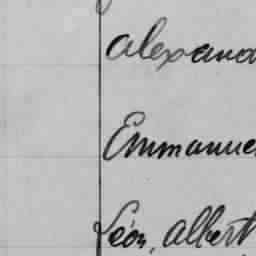 alexand
Emmanue
Léon, albert